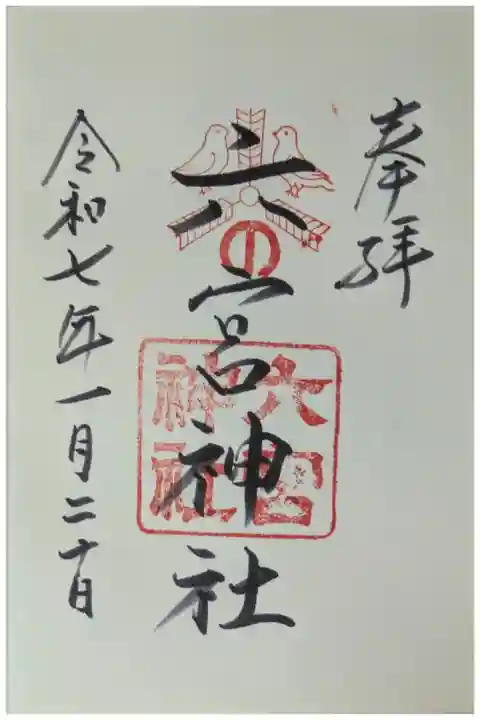 奉拝
六宮神社
六宮神社
令和七年一月二十日